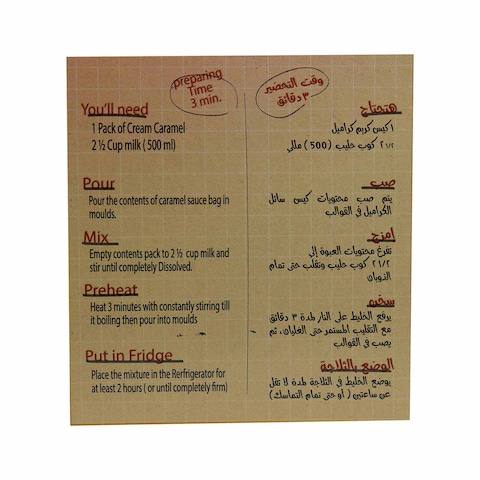 preparing
Time
3 min.
You'll need
1 Pack of Cream Caramel
2 ½ Cup milk ( 500 ml)
Pour
Pour the contents of caramel sauce bag in
moulds.
Mix
Empty contents pack to 2 ½ cup milk and
stir until completely Dissolved.
Preheat
Heat 3 minutes with constantly stirring till
it boiling then pour into moulds
Put in Fridge
Place the mixture in the Rerfrigerator for
at least 2 hours ( or until completely firm)
وقت التحضير
٣ دقائق
هتحتاج
١ كيس كريم كراميل
٢ ١/٢ كوب حليب (500) مللي
صب
يتم صب محتويات كيس سائل
الكراميل في القوالب
امزج
تفرغ محتويات العبوة إلى
٢ ١/٢ كوب حليب وتقلب حتى تمام
الذوبان
سخن
يرفع الخليط على النار لمدة ٣ دقائق
مع التقليب المستمر حتى الغليان، ثم
يصب في القوالب
الوضع بالثلاجة
يوضع الخليط في الثلاجة لمدة لا تقل
عن ساعتين ( او حتى تمام التماسك)